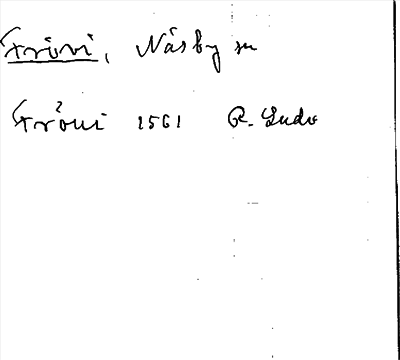 Frövi, Näsby sn
Fröui 1561 R. Ludo